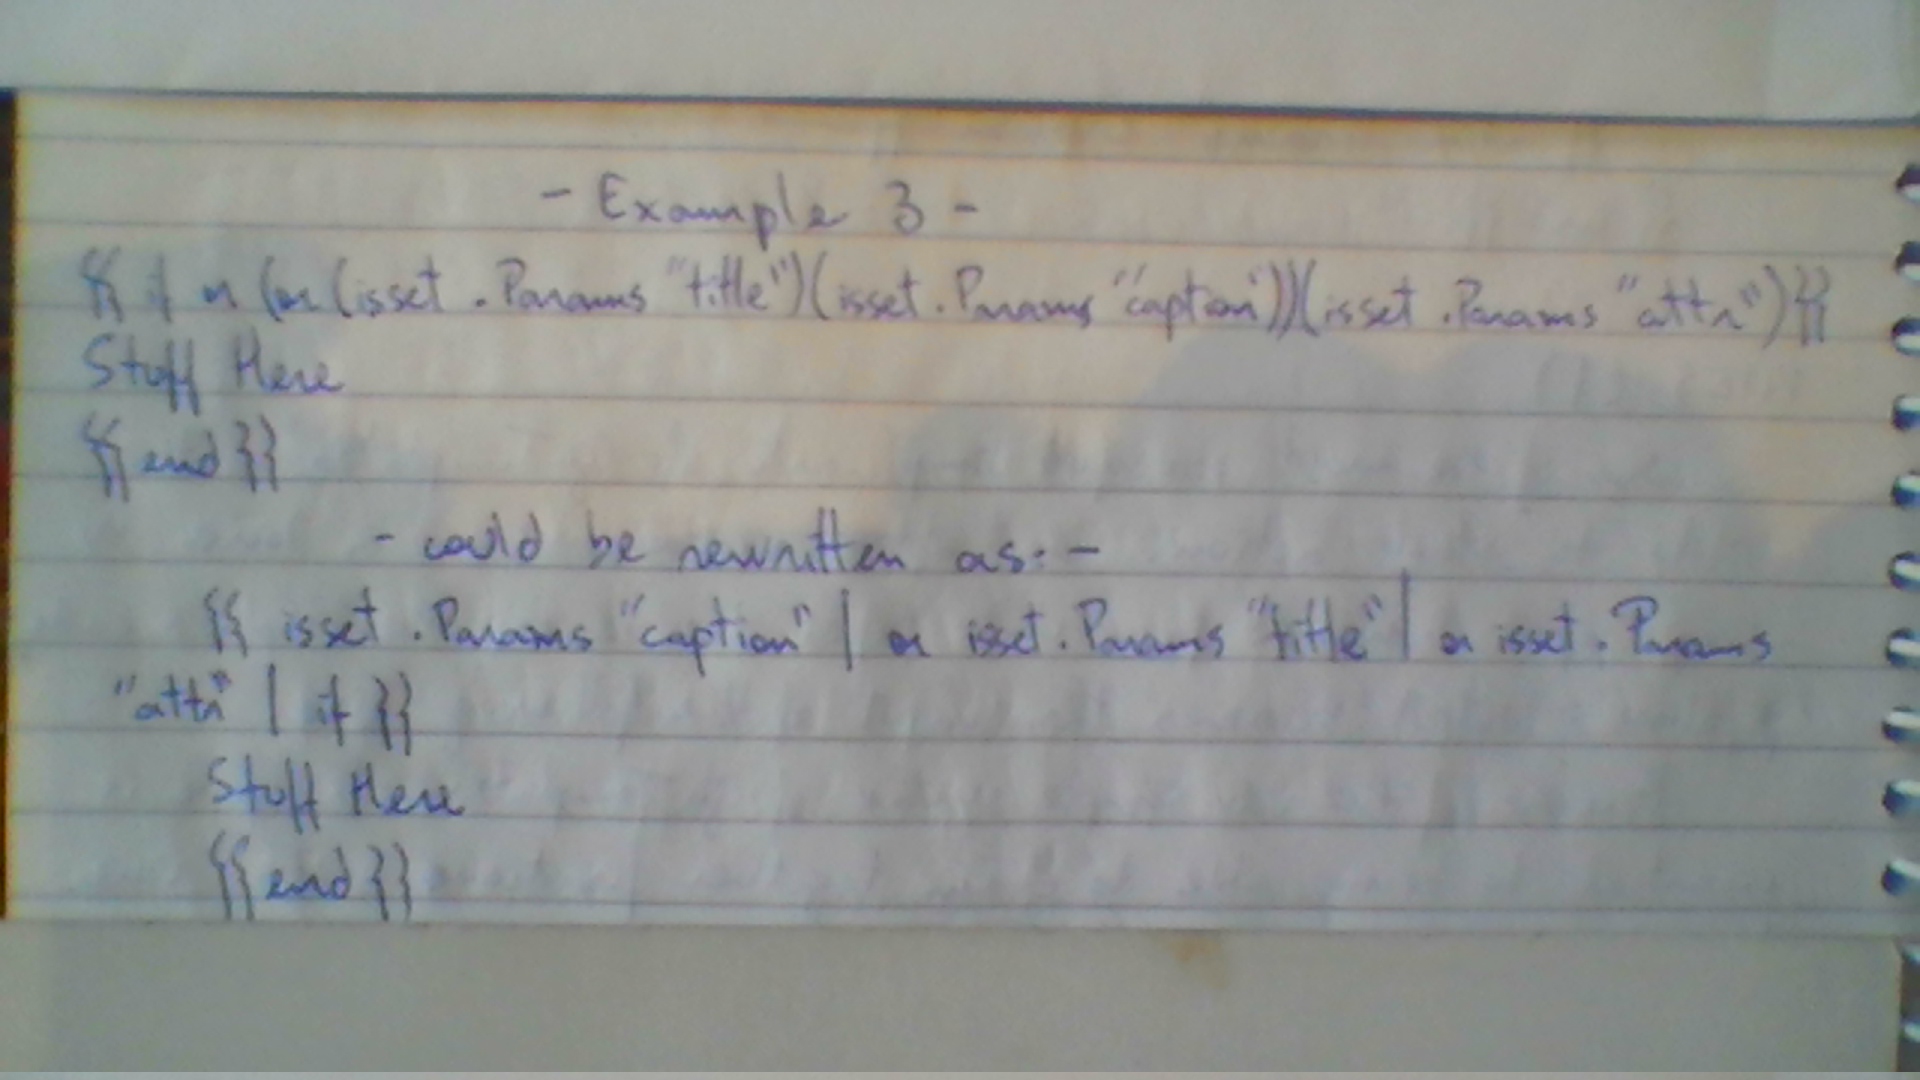 - Example 3 -
{{ if or (or (isset .Params "title")(isset .Params "caption"))(isset .Params "attr")}}
Stuff Here
{{ end }}
- could be rewritten as: -
{{ isset .Params "caption" | or isset .Params "title" | or isset .Params
"attr" | if }}
Stuff Here
{{ end }}